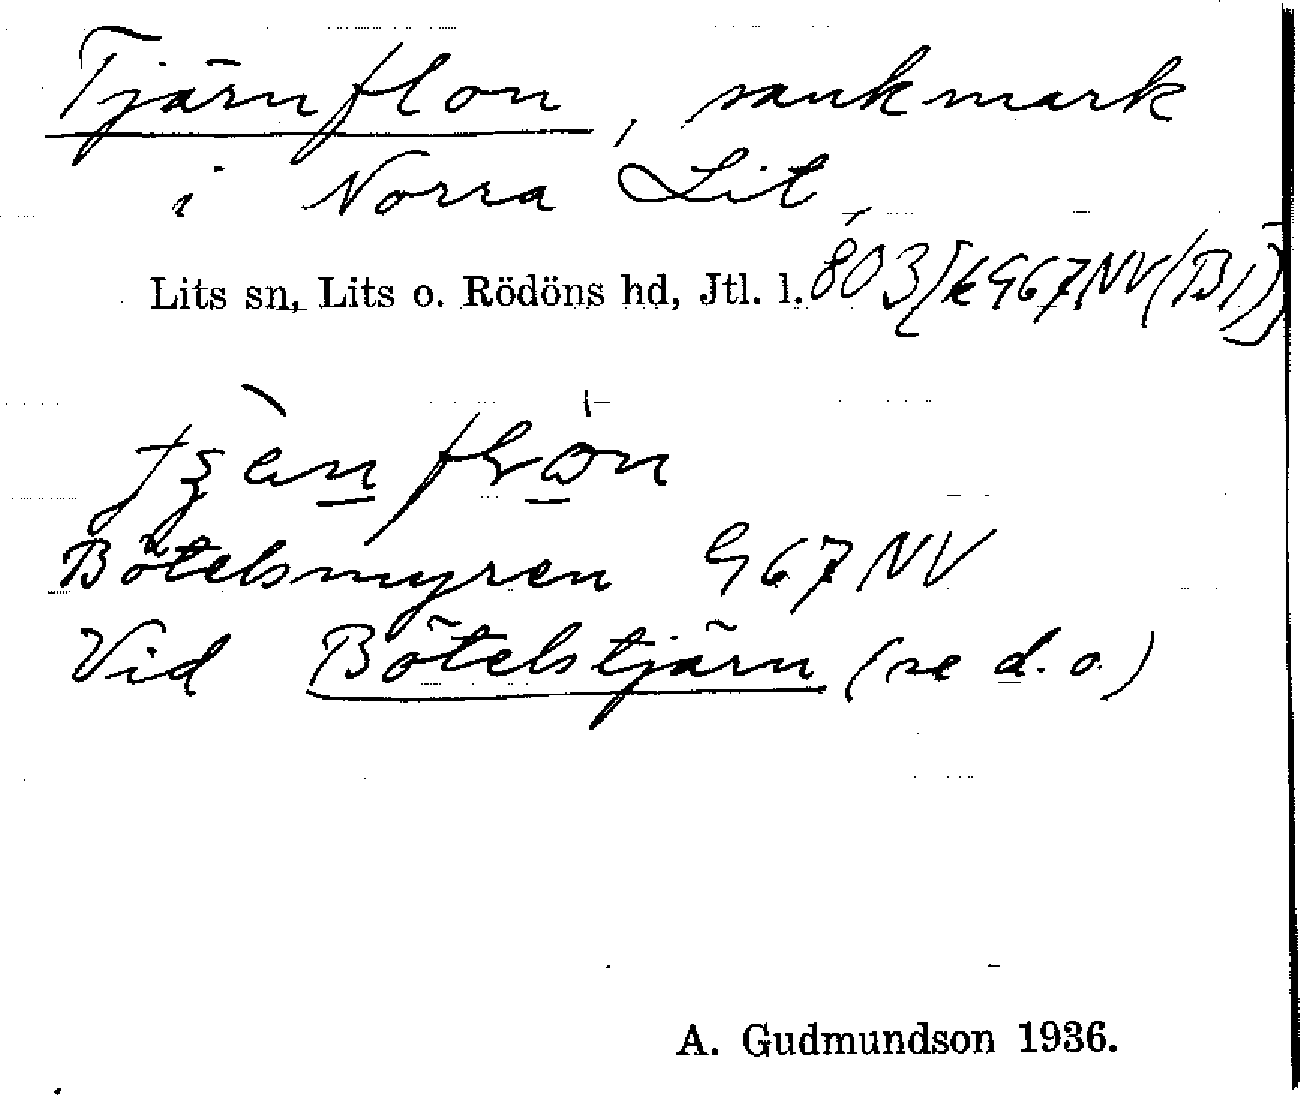 Tjärnflon, sankmark
i Norra Lit,
Lits sn, Lits o. Rödöns hd, Jtl. l. 803 [k 967 NV (B1)]
Bötelsmyren 967 NV
Vid Bötelstjärn (se d. o.)
A. Gudmundson 1936.